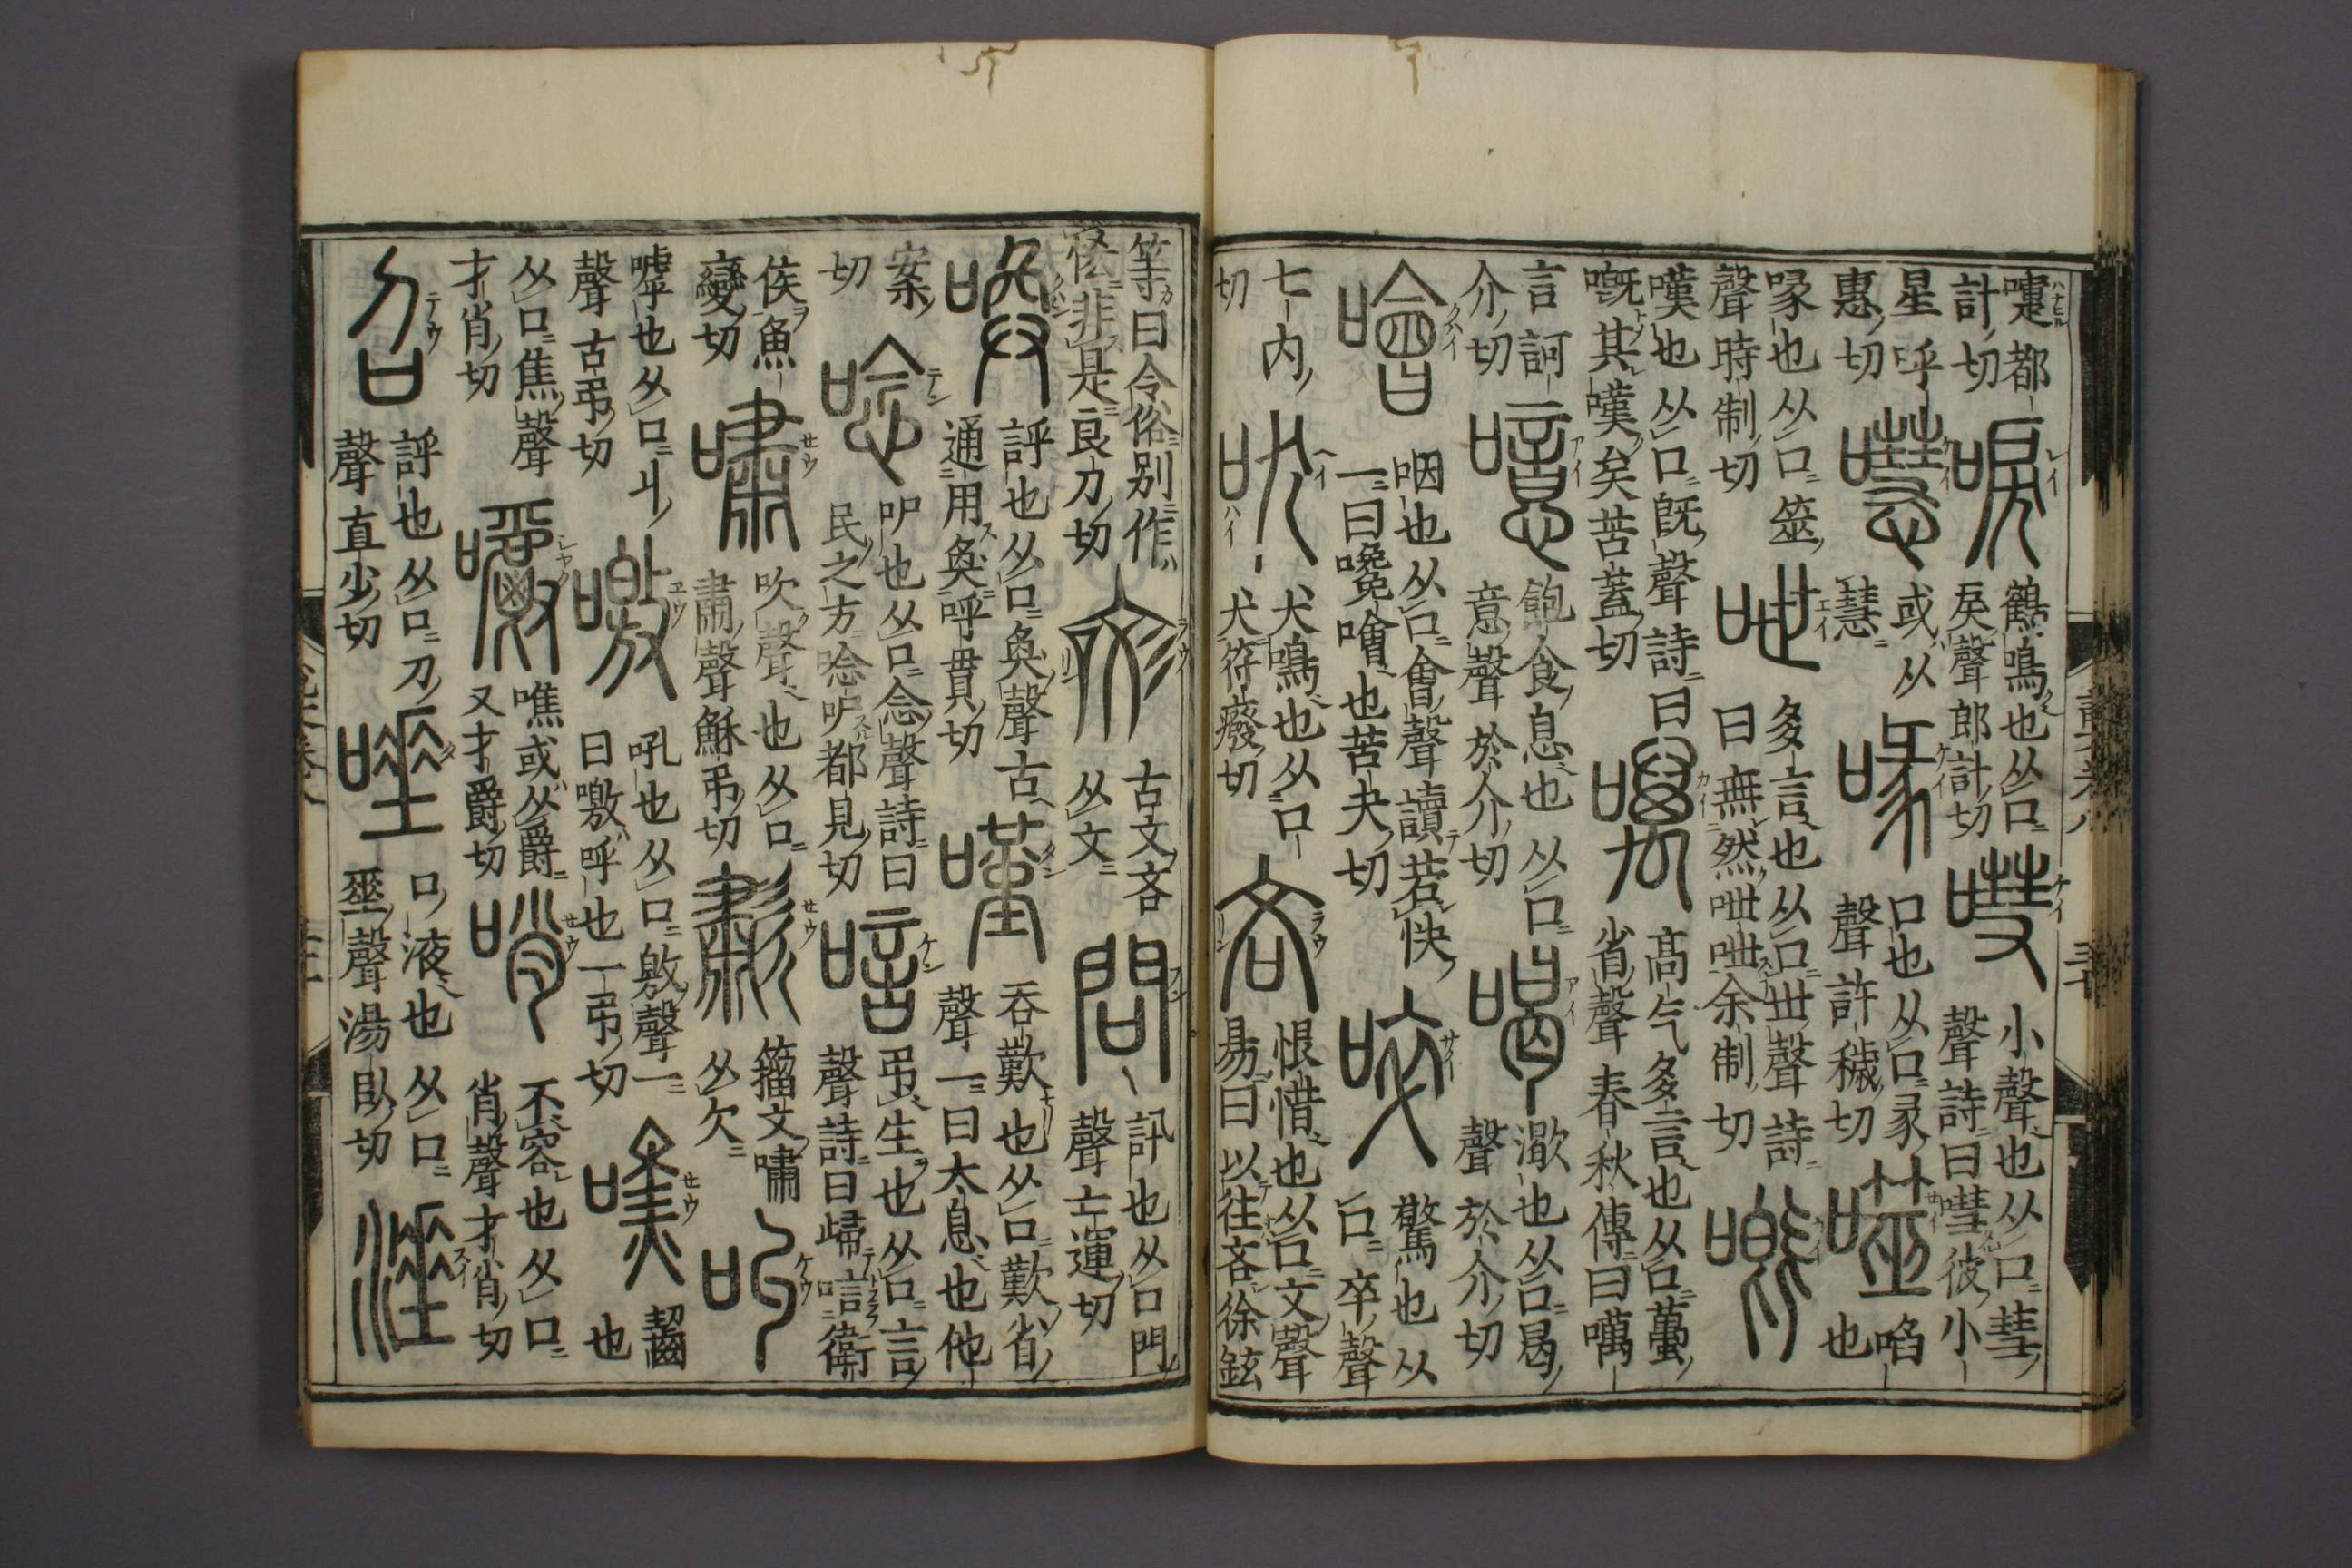 嚏都
計切
唳
鶴鳴也从口
戾聲郎計切
嘒
小聲也从口彗
聲詩曰嘒彼小
星呼
惠切
嚖
或从
慧
喙
口也从口彖
聲許穢切
噬
啗
也
喙也从口筮
聲時制切
呭
多言也从口丗聲詩
曰無然呭呭余制切
嘅
嘆也从口旣聲詩曰
嘅其嘆矣苦蓋切
噧
高气多言也从口蠆
省聲春秋傳曰噧
言訶
介切
噫
飽食息也从口
意聲於介切
喝
㵣也从口曷
聲於介切
噲
咽也从口會聲讀若快
一曰嚵噲也苦夬切
啐
驚也从
口卒聲
七内
切
吠
犬鳴也从口
犬符廢切
吝
恨惜也从口文聲
易曰以往吝徐鉉
等曰今俗別作
恡非是良刀切
㖁
古文吝
从文
問
訊也从口門
聲亡運切
喚
評也从口奐聲古
通用奐呼貫切
嘆
吞歎也从口歎省
聲一曰太息也他
案
切
唸
㕧也从口念聲詩曰
民之方唸㕧都見切
唁
弔生也从口言
聲詩曰歸唁衞
侯魚
變切
嘯
吹聲也从口
肅聲穌弔切
歗
籒文嘯
从欠
叫
嘑也从口丩
聲古弔切
噭
吼也从口敫聲一
曰噭呼也一弔切
噍
齧
也
从口焦聲
才肖切
嚼
噍或从爵
又才爵切
哨
不容也从口
肖聲才肖切
召
評也从口刀
聲直少切
唾
口液也从口
埀聲湯臥切
涶